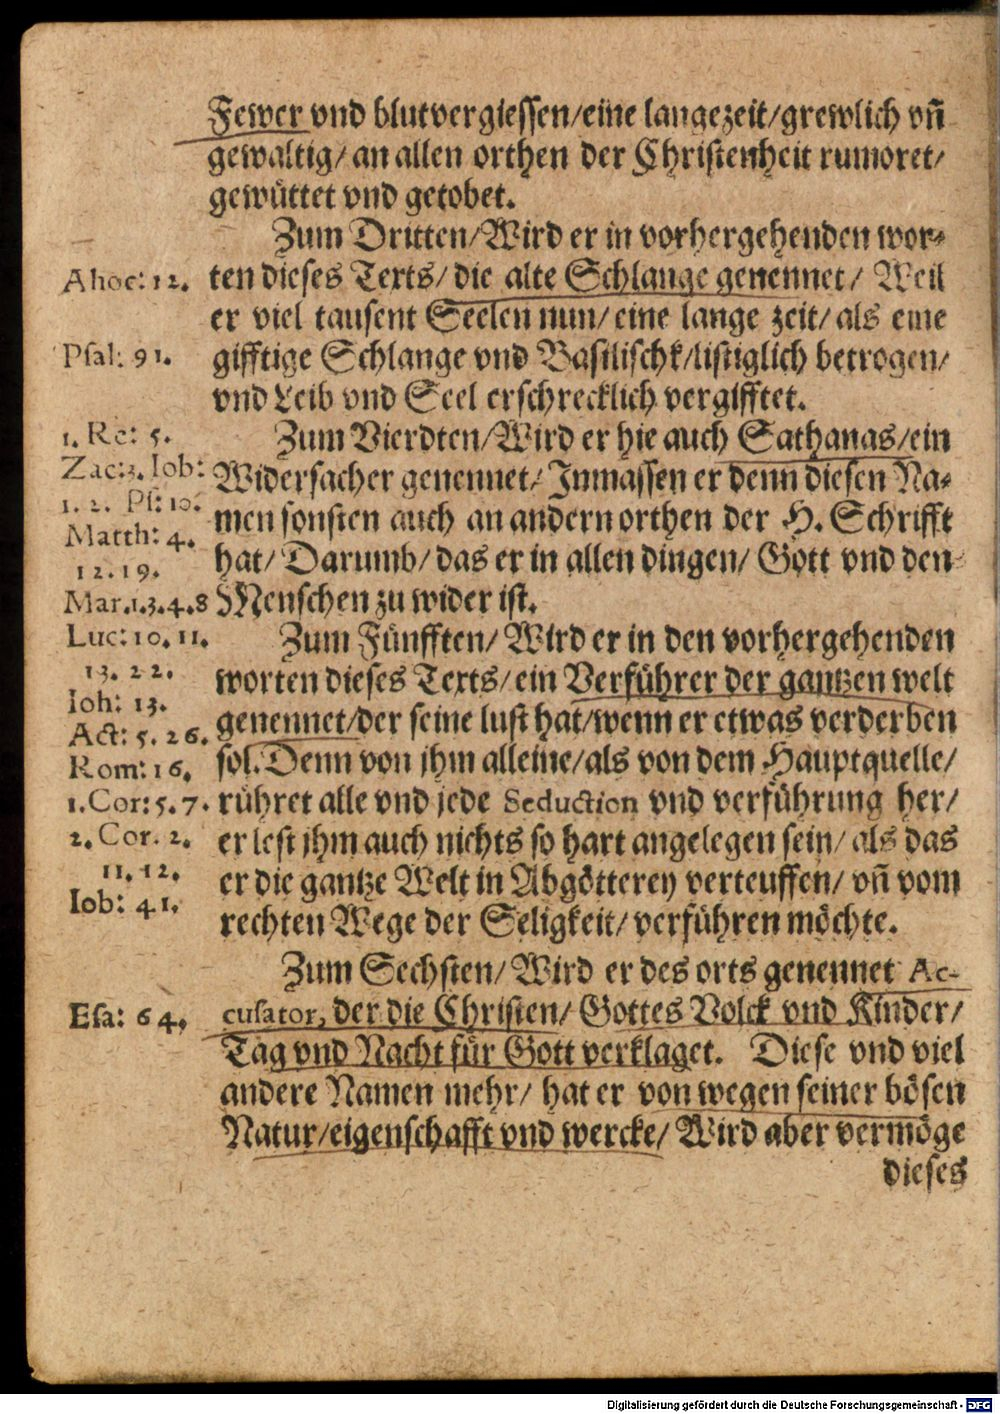 Fewer vnd blutvergiessen/eine langezeit/grewlich vñ
gewaltig/ an allen orthen der Christenheit rumoret/
gewüttet vnd getobet.
Zum Dritten/Wird er in vorhergehenden wor-
Ahoc: 12. ten dieses Texts/ die alte Schlange genennet/ Weil
er viel tausent Seelen nun/ eine lange zeit/ als eine
Psal: 91. gifftige Schlange vnd Basilischk/listiglich betrogen/
vnd Leib vnd Seel erschrecklich vergifftet.
1. Re: 5. Zum Vierdten/Wird er hie auch Sathanas/ein
Zac:3. Iob: Widersacher genennet/ Inmassen er denn diesen Na-
1. 2. Ps: 10. men sonsten auch an andern orthen der H. Schrifft
Matth: 4. hat/ Darumb/ das er in allen dingen/ Gott vnd den
12.19.
Mar.1.3.4.8 Menschen zu wider ist.
Luc: 10. 11. Zum Fünfften/ Wird er in den vorhergehenden
13. 22. worten dieses Texts/ ein Verführer der gantzen welt
Ioh: 13. genennet/der seine lust hat/wenn er etwas verderben
Act: 5. 26. sol. Denn von jhm alleine/als von dem Hauptquelle/
Rom: 16.
1.Cor:5.7. rühret alle vnd jede Seduction vnd verführung her/
2. Cor. 2. er lest jhm auch nichts so hart angelegen sein/ als das
11. 12. er die gantze Welt in Abgötterey verteuffen/ vñ vom
Iob: 41. rechten Wege der Seligkeit/ verführen möchte.
Zum Sechsten/ Wird er des orts genennet Ac-
Esa: 64. cusator, der die Christen/ Gottes Volck vnd Kinder/
Tag vnd Nacht für Gott verklaget. Diese vnd viel
andere Namen mehr/ hat er von wegen seiner bösen
Natur/eigenschafft vnd wercke/ Wird aber vermöge
dieses
Digitalisierung gefördert durch die Deutsche Forschungsgemeinschaft - DFG